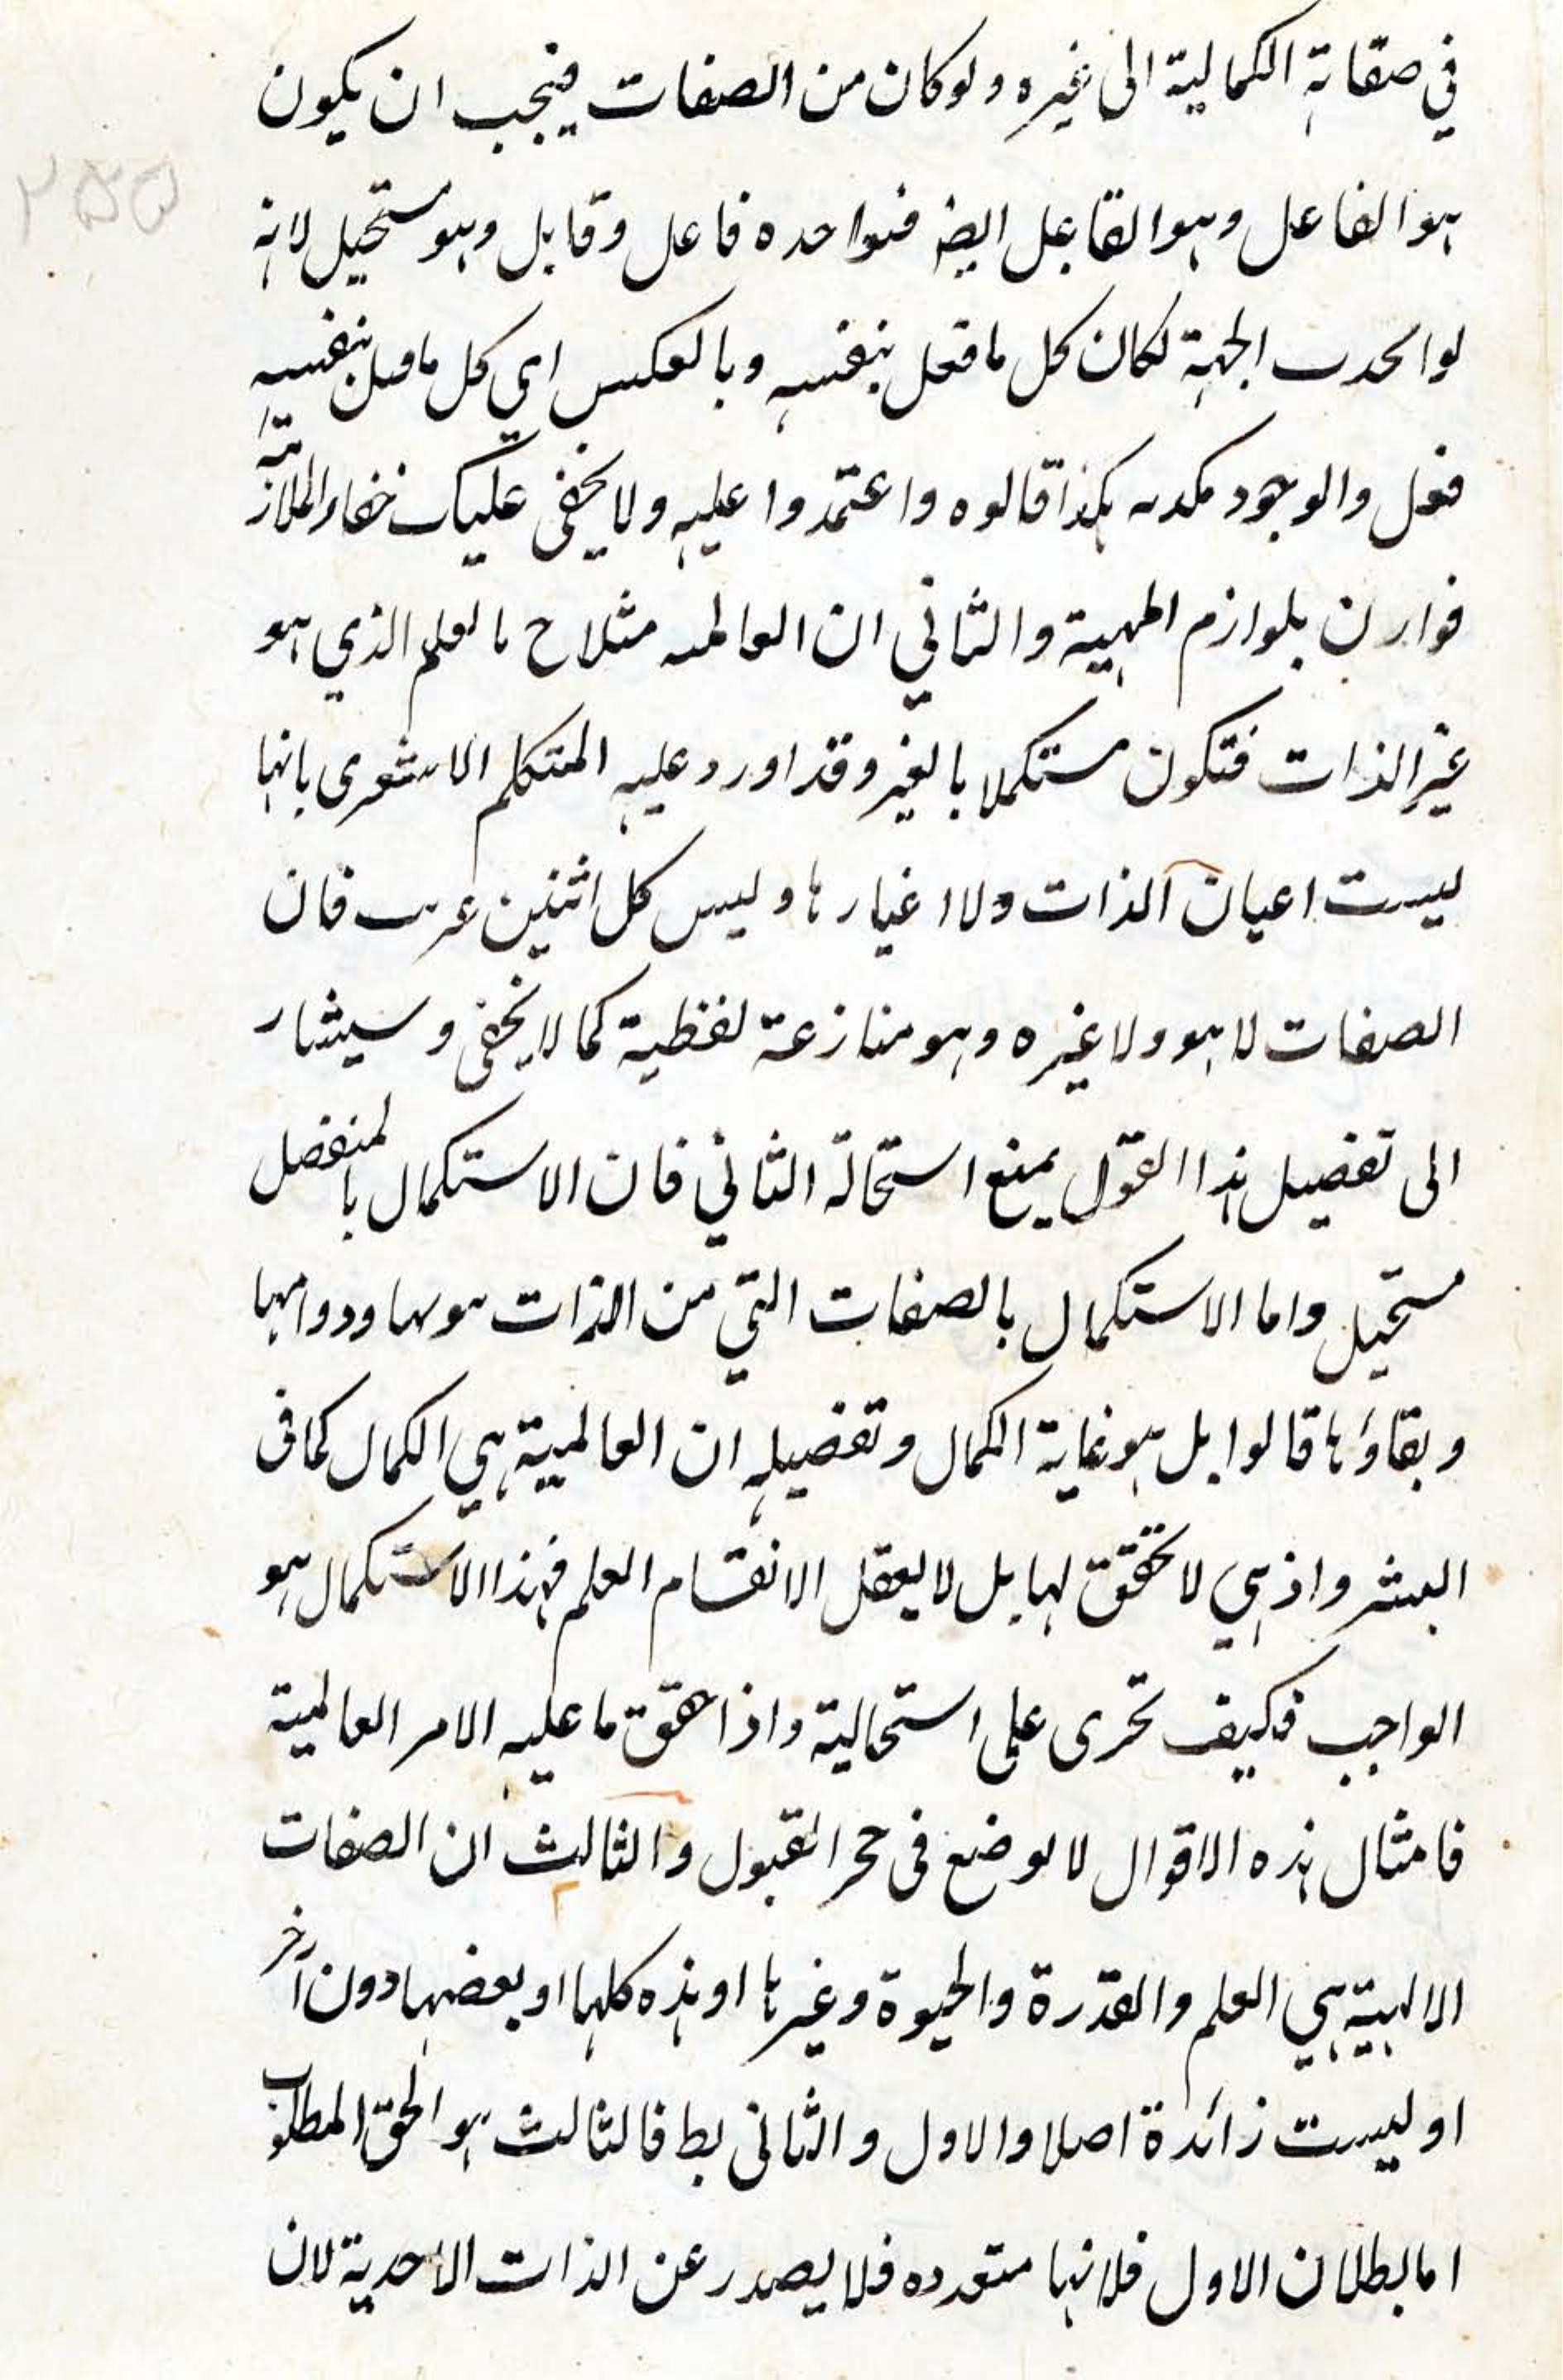 في صفاته الكمالية الى غيره ولو كان من الصفات فيجب ان يكون
٢٥٥
هو الفاعل وهو القابل ايضا فواحده فاعل وقابل وهو مستحيل لانه
لو اتحدت الجهة لكان كل ما فعل بنفسه وبالعكس اي كل ما قبل بنفسه
فعل والوجود يكذبه هكذا قالوه واعتمدوا عليه ولا يخفى عليك خفاء الملازمة
بلوازم المهية والثاني ان العالمية مثلا ح بالعلم الذي هو
غير الذات فتكون مستكملا بالغير وقد اورد عليه المتكلم الاشعرى بانها
ليست اعيان الذات ولا اغيارها وليس كل اثنين فان
الصفات لا هو ولا غيره وهو منازعة لفظية كما لا يخفى وسيشار
الى تفصيل هذا القول يمنع استحالة الثاني فان الاستكمال بالمنفصل
مستحيل واما الاستكمال بالصفات التي من الذات ودوامها
وبقاؤها قالوا بل هو غاية الكمال وتفصيله ان العالمية هي الكمال كما فى
البشر واذ هي لا تحقق لها بل لا يعقل الا نفسام العلم فهذا الاستكمال هو
الواجب فكيف تحرى على استحالية واذا حقق ما عليه الامر العالمية
فامثال هذه الاقوال لا يوضع فى حجر القبول والثالث ان الصفات
الالهية هي العلم والقدرة والحيوة وغيرها او هذه كلها او بعضها دون آخر
او ليست زائدة اصلا والاول والثانى بط فالثالث هو الحق المطلوب
اما بطلان الاول فلانها متعدده فلا يصدر عن الذات الاحدية لان